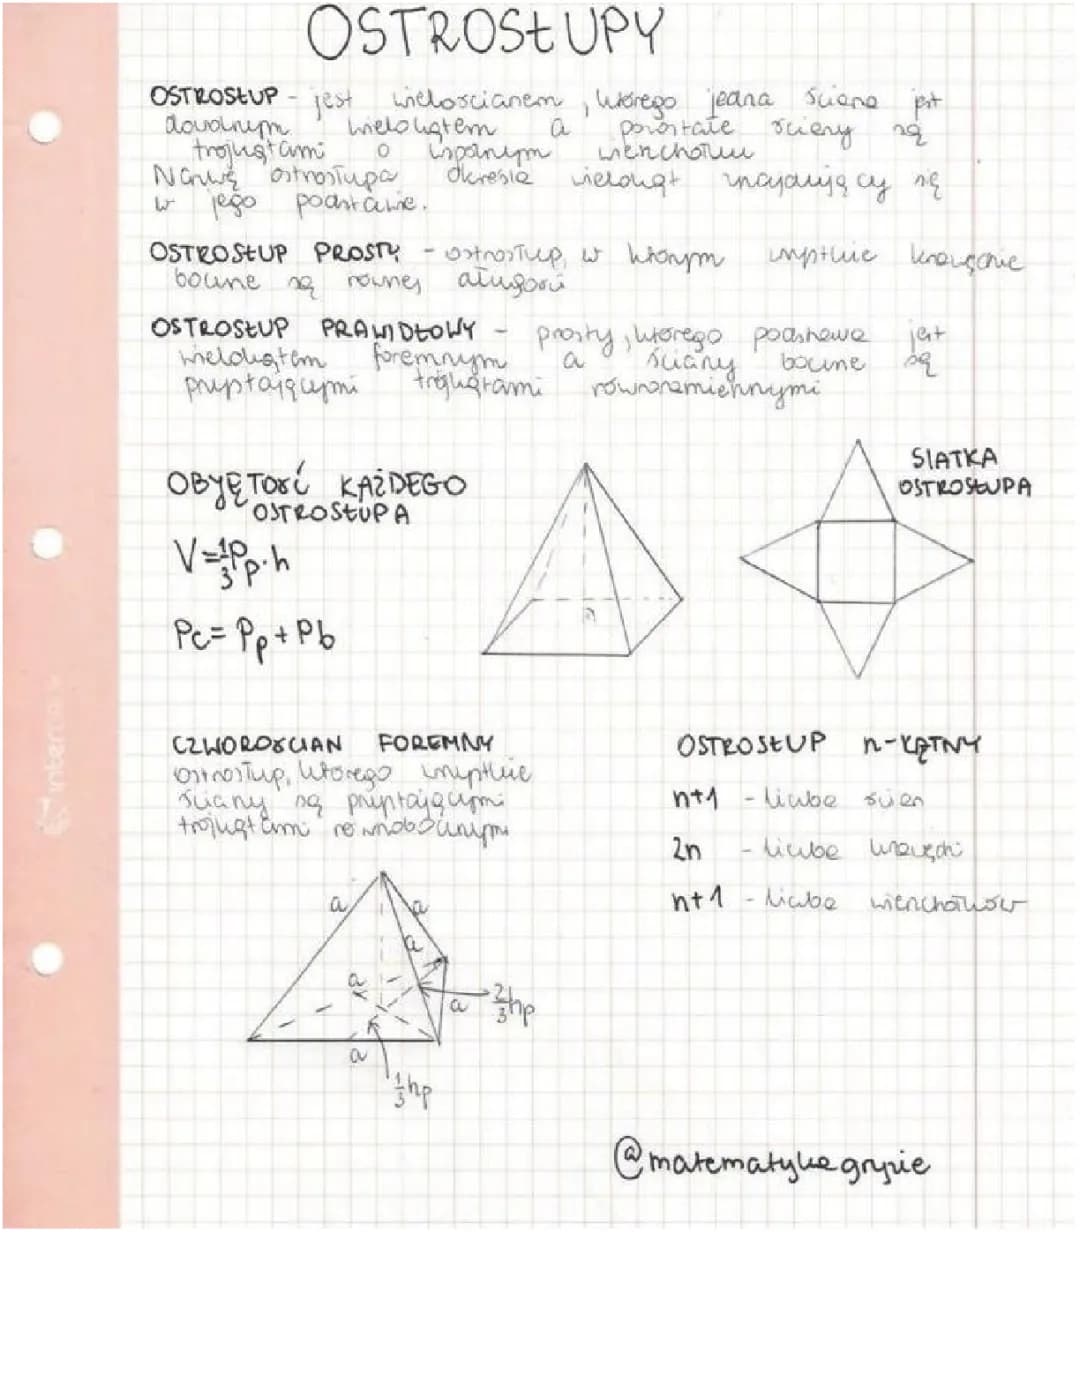 OSTROSŁUPY
OSTROSŁUP - jest wielościanem, którego jedna ściana jest
dowolnym wielokątem a pozostałe ściany są
trójkątami o wspólnym wierzchołku
Nazwę ostrosłupa określa wielokąt znajdujący się
w jego podstawie.
OSTROSŁUP PROSTY - ostrosłup, w którym wszystkie krawędzie
boczne są równej długości
OSTROSŁUP PRAWIDŁOWY - prosty, którego podstawa jest
wielokątem foremnym a ściany boczne są
przystającymi trójkątami równoramiennymi
SIATKA
OSTROSŁUPA
OBJĘTOŚĆ KAŻDEGO
OSTROSŁUPA
V=1/3Pp·h
Pc= Pp+Pb
CZWOROŚCIAN FOREMNY
ostrosłup, którego wszystkie
ściany są przystającymi
trójkątami równobocznymi
OSTROSŁUP n-KĄTNY
n+1 - liczba ścian
2n - liczba krawędzi
n+1 - liczba wierzchołków
a a
a
a
a 2/3hp
a
1/3hp
@matematykawgrypie
interdruk